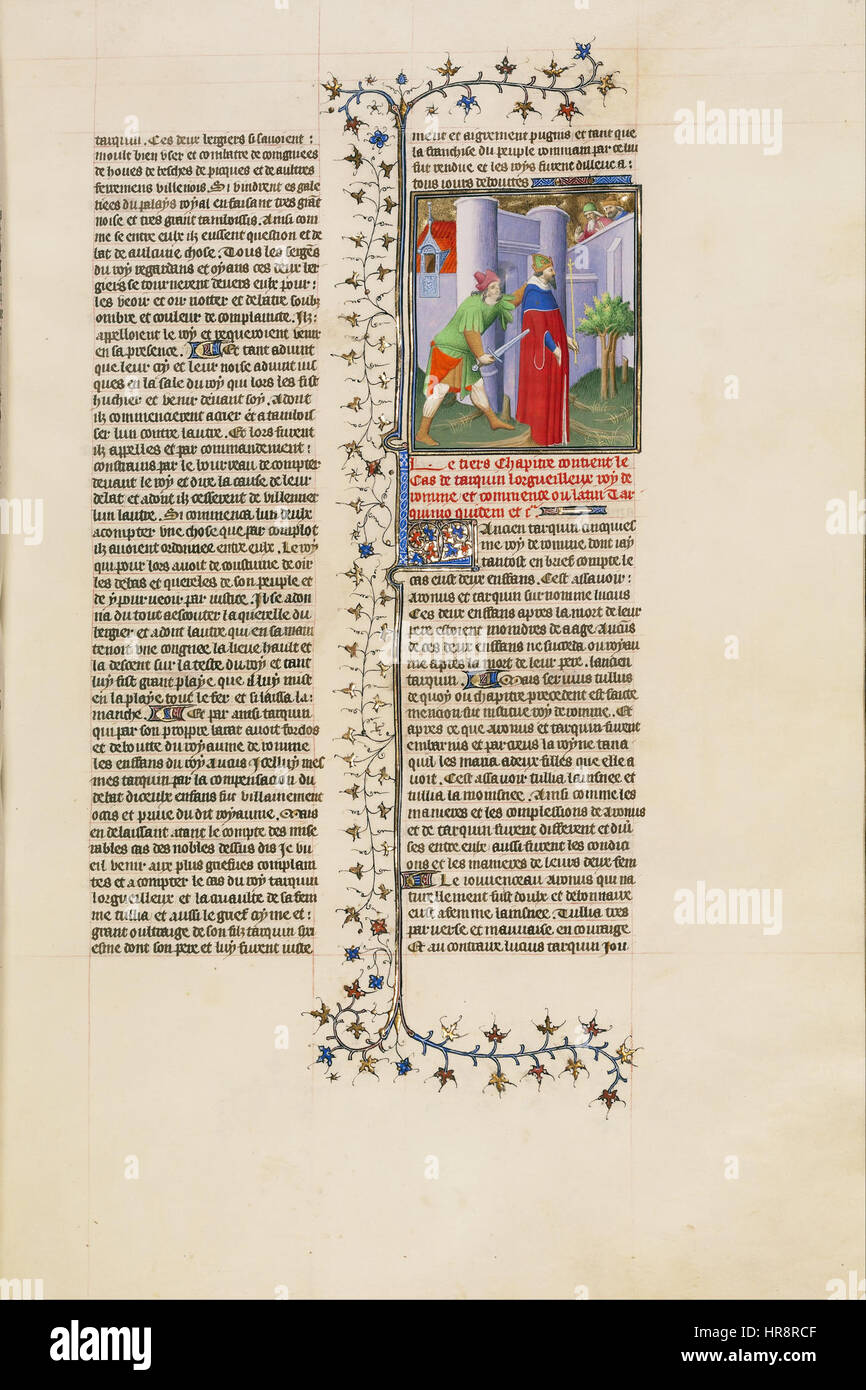 tarquin. Ces deux bergiers si savoient:
moult bien user et combatre de congniees
de houes de besches de picques et de aultres
ferremens villenois. Si vindrent es gale
riees du palays royal en faisant tres grāt
noise et tres grant tamboissis. Ainsi com
me se entre eulx ilz eussent question et de
bat de aulcune chose. Tous les sergēs
du roy regardans et oyans ces deux ber
giers se tournerent devers eulx pour:
les veoir et oir notter et debatre soubz
ombre et couleur de complainte. Ilz:
appelloient le roy et requeroient venir
en sa presence. Et tant advint
que leur cry et leur noise advint jus
ques en la sale du roy qui lors les fist
huchier et venir devant soy. Adont
ilz commencerent a crier et a tambois
ser lun contre lautre. Et lors furent
ilz appelles et par commandement:
constrains par le bourreau de compter
devant le roy et dire la cause de leur
debat et adont ilz cesserent de villenner
lun lautre. Si commenca lun deulx
a compter une chose que par complot
ilz avoient ordonnee entre eulx. Le roy
qui pour lors avoit de coustume de oir
les debas et quereles de son peuple et
de y pourveoir par justice. Il se adon
na du tout a escouter la querelle du
bergier et adont lautre qui en sa main
tenoit une congnee la lieve hault et
la descent sur la teste du roy et tant
luy fist grant playe que il luy mist
en la playe tout le fer et si laissa la:
manche. Et par ainsi tarquin
qui par son propre barat avoit fordos
et deboutte du royaume de romme
les enffans du roy Ancus icelluy mes
mes tarquin par la compensacion du
debat diceulx enfans fut villainement
occis et prive du dit royaume. Mais
en delaissant atant le compte des mise
rables cas des nobles dessus dis Je vu
eil venir aux plus griefues complain
tes et a compter le cas du roy tarquin
lorgueilleux et la cruaulte de sa fem
me tullia et aussi le grief cryme et:
grant oultraige de son filz tarquin sixt
esme dont son pere et luy furent juste
ment et aigrement pugnis et tant que
la franchise du peuple rommain par ce luy
fut rendue et les roys furent dillecq a:
tous jours debouttes
Le tiers Chapitre contient le
Cas de tarquin lorgueilleux roy de
romme et commence ou latin Tar
quinio quidem et cͣ.
L Ancien tarquin cinquies
me roy de romme dont jay
tantost en brief compte le
cas eust deux enffans. Cest assavoir:
Aronus et tarquin sur nomme lucius
Ces deux enffans apres la mort de leur
pere estoient moindres de aage. Aucūs
de ces deux enffans ne succeda ou royau
me apres la mort de leur pere. lancien
tarquin. Mais servius tullus
de quoy ou chapitre precedent est faicte
mencion fut institue roy de romme. Et
apres ce que aronus et tarquin furent
embarnis et parcreus la royne tana
quil les maria a deux filles que elle a
voit. Cest assavoir tullia lainsnee et
tullia la moinsnee. Ainsi comme les
manieres et les complessions de aronus
et de tarquin furent different et diūs
ses entre eulx aussi furent les condici
ons et les manieres de leurs deux fem
Le jouvenceau aronus qui na
turellement fust doulx et debonnaire
eust a femme lainsnee. Tullia tres
parverse et mauvaise en couraige
Et au contraire lucius tarquin jou
alamy
a
alamy
Image ID: HR8RCF
www.alamy.com